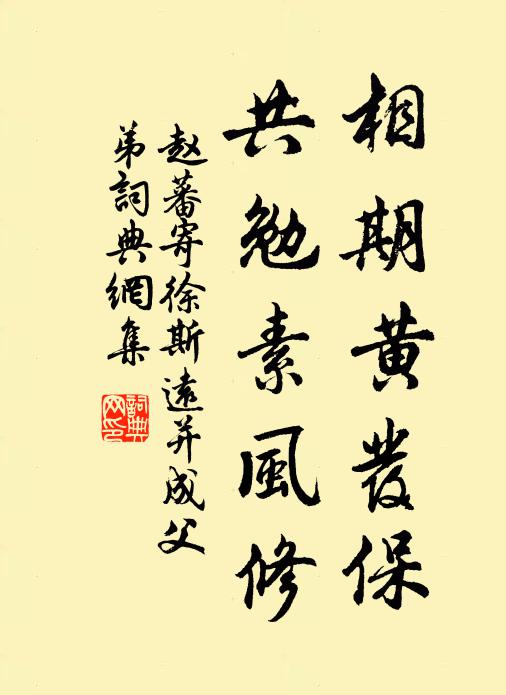 相期黄發保
共勉素風修
赵蕃寄徐斯遠并成父
弟詞典網集
詞典
网印